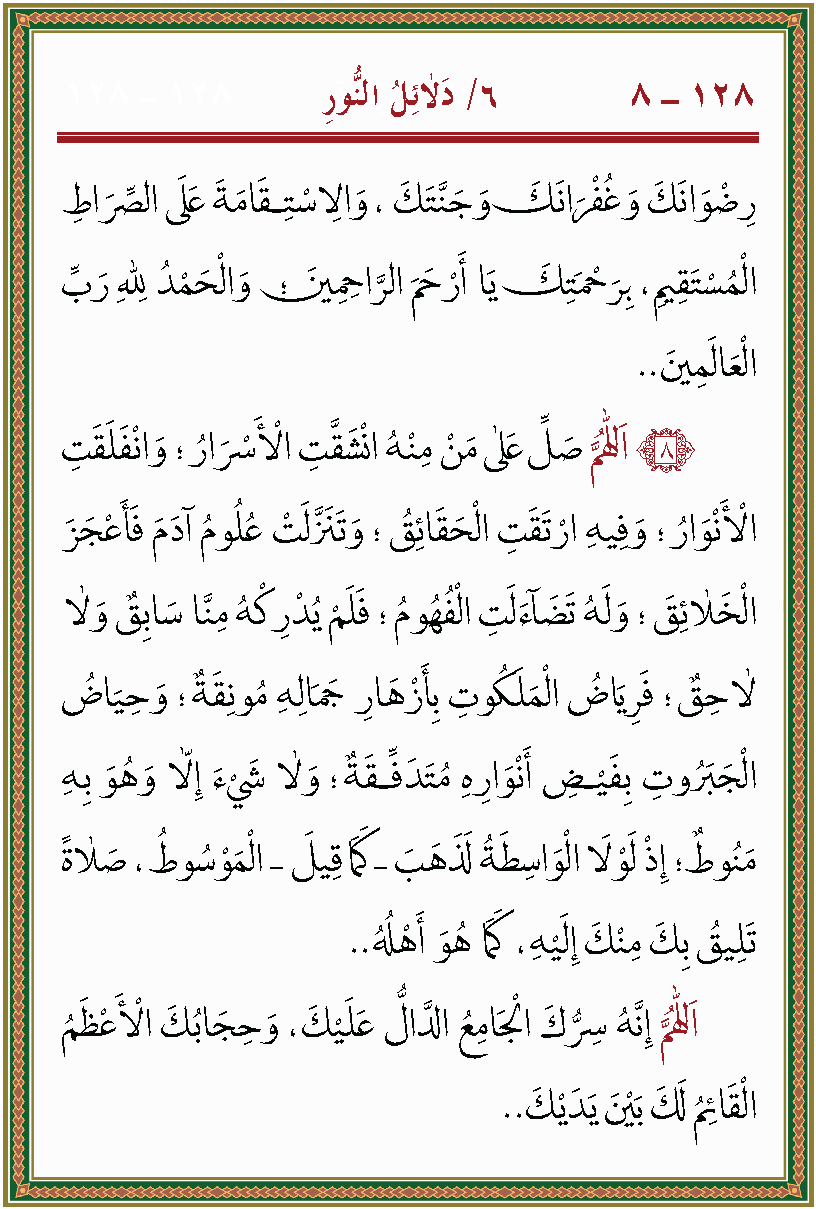 ١٢٨ – ٨ ٦/ دَلَائِلُ النُّورِ ١٢٨ ١٢٨
رِضْوَانَكَ وَغُفْرَانَكَ وَجَنَّتَكَ ، وَالِاسْتِقَامَةَ عَلَى الصِّرَاطِ
الْمُسْتَقِيمِ ، بِرَحْمَتِكَ يَا أَرْحَمَ الرَّاحِمِينَ ؛ وَالْحَمْدُ لِلّٰهِ رَبِّ
الْعَالَمِينَ..
﴿٨﴾ اَللّٰهُمَّ صَلِّ عَلٰى مَنْ مِنْهُ انْشَقَّتِ الْأَسْرَارُ ؛ وَانْفَلَقَتِ
الْأَنْوَارُ ؛ وَفِيهِ ارْتَقَتِ الْحَقَائِقُ ؛ وَتَنَزَّلَتْ عُلُومُ آدَمَ فَأَعْجَزَ
الْخَلَائِقَ ؛ وَلَهُ تَضَآءَلَتِ الْفُهُومُ ؛ فَلَمْ يُدْرِكْهُ مِنَّا سَابِقٌ وَلَا
لَاحِقٌ ؛ فَرِيَاضُ الْمَلَكُوتِ بِأَزْهَارِ جَمَالِهِ مُونِقَةٌ ؛ وَحِيَاضُ
الْجَبَرُوتِ بِفَيْضِ أَنْوَارِهِ مُتَدَفِّقَةٌ ؛ وَلَا شَيْءَ إِلَّا وَهُوَ بِهِ
مَنُوطٌ ؛ إِذْ لَوْلَا الْوَاسِطَةُ لَذَهَبَ ـ كَمَا قِيلَ ـ الْمَوْسُوطُ ، صَلَاةً
تَلِيقُ بِكَ مِنْكَ إِلَيْهِ ، كَمَا هُوَ أَهْلُهُ..
اَللّٰهُمَّ إِنَّهُ سِرُّكَ الْجَامِعُ الدَّالُّ عَلَيْكَ ، وَحِجَابُكَ الْأَعْظَمُ
الْقَائِمُ لَكَ بَيْنَ يَدَيْكَ..